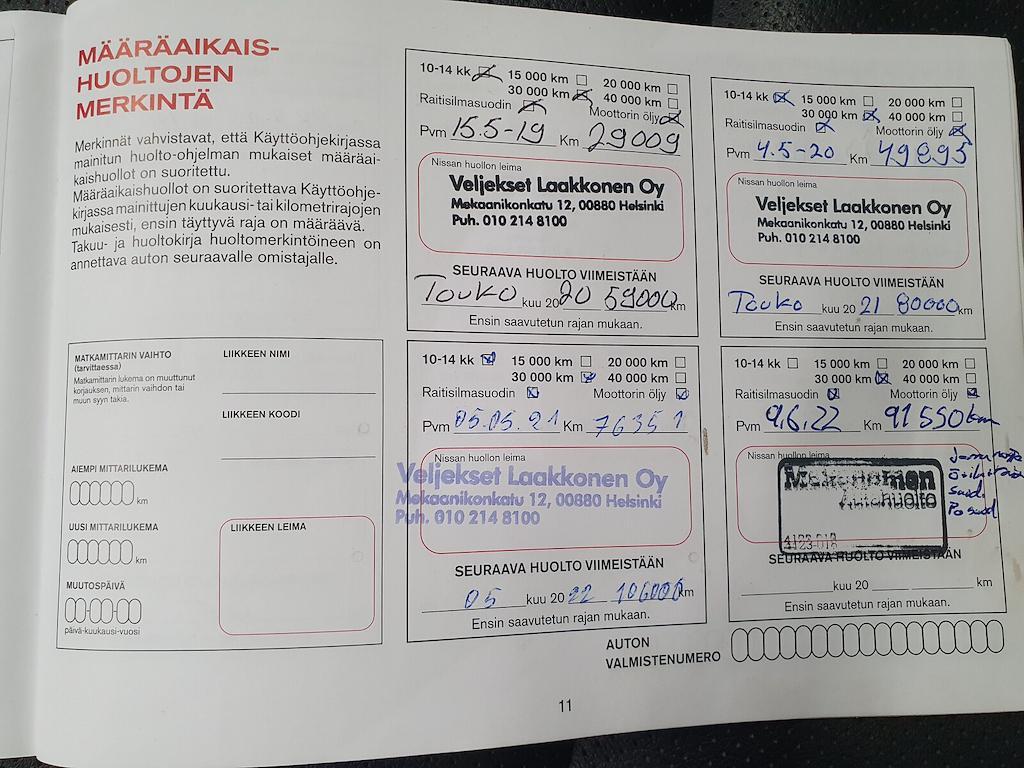 MÄÄRÄAIKAIS-
HUOLTOJEN
MERKINTÄ
Merkinnät vahvistavat, että Käyttöohjekirjassa
mainitun huolto-ohjelman mukaiset määräai-
kaishuollot on suoritettu.
Määräaikaishuollot on suoritettava Käyttöohje-
kirjassa mainittujen kuukausi- tai kilometrirajojen
mukaisesti, ensin täyttyvä raja on määräävä.
Takuu- ja huoltokirja huoltomerkintöineen on
annettava auton seuraavalle omistajalle.
10-14 kk 15 000 km 20 000 km
30 000 km 40 000 km
Raitisilmasuodin Moottorin öljy
Pvm 15.5-19 Km 29009
Nissan huollon leima
Veljekset Laakkonen Oy
Mekaanikonkatu 12, 00880 Helsinki
Puh. 010 214 8100
SEURAAVA HUOLTO VIIMEISTÄÄN
Touko kuu 2020 59000 km
Ensin saavutetun rajan mukaan.
10-14 kk 15 000 km 20 000 km
30 000 km 40 000 km
Raitisilmasuodin Moottorin öljy
Pvm 4.5-20 Km 49895
Nissan huollon leima
Veljekset Laakkonen Oy
Mekaanikonkatu 12, 00880 Helsinki
Puh. 010 214 8100
SEURAAVA HUOLTO VIIMEISTÄÄN
Touko kuu 20 21 80000 km
Ensin saavutetun rajan mukaan.
MATKAMITTARIN VAIHTO
(tarvittaessa)
Matkamittarin lukema on muuttunut
korjauksen, mittarin vaihdon tai
muun syyn takia.
AIEMPI MITTARILUKEMA
km
UUSI MITTARILUKEMA
km
MUUTOSPÄIVÄ
päivä-kuukausi-vuosi
LIIKKEEN NIMI
LIIKKEEN KOODI
LIIKKEEN LEIMA
10-14 kk 15 000 km 20 000 km
30 000 km 40 000 km
Raitisilmasuodin Moottorin öljy
Pvm 05.05.21 Km 76351
Nissan huollon leima
Veljekset Laakkonen Oy
Mekaanikonkatu 12, 00880 Helsinki
Puh. 010 214 8100
SEURAAVA HUOLTO VIIMEISTÄÄN
05 kuu 20 22 106000 km
Ensin saavutetun rajan mukaan.
10-14 kk 15 000 km 20 000 km
30 000 km 40 000 km
Raitisilmasuodin Moottorin öljy
Pvm 9.6.22 Km 91550 km
Nissan huollon leima
Mekonomen
Autohuolto
4123-018
SEURAAVA HUOLTO VIIMEISTÄÄN
kuu 20 km
Ensin saavutetun rajan mukaan.
AUTON
VALMISTENUMERO
11